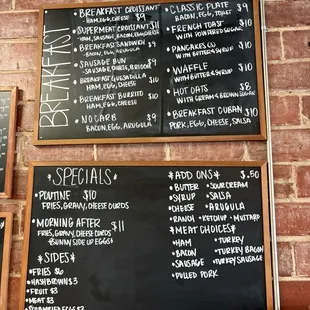 BREAKFAST
BREAKFAST CROISSANT $9
HAM, EGG, CHEESE
SUPERMENT CROISSANT $11
HAM, SAUSAGE, BACON, EGG, CHEESE
BREAKFAST SANDWICH $9
BACON, EGG, ARUGULA
SAUSAGE BUN $9
SAUSAGE, CHEESE, BRIOCHE
BREAKFAST QUESADILLA $10
HAM, EGG, CHEESE
BREAKFAST BURRITO $10
HAM, EGG, CHEESE
NO CARB $9
BACON, EGG, ARUGULA
CLASSIC PLATE $9
BACON, EGG, TOAST
FRENCH TOAST $10
WITH POWDERED SUGAR
PANCAKES $10
WITH BUTTER & SYRUP
WAFFLE $10
WITH BUTTER & SYRUP
HOT OATS $8
WITH CREAM & BROWN SUGAR
BREAKFAST CUBAN $10
PORK, EGG, CHEESE, SALSA
*SPECIALS*
• POUTINE $10
FRIES, GRAVY, CHEESE CURDS
• MORNING AFTER $11
FRIES, GRAVY, CHEESE CURDS
& SUNNY SIDE UP EGGS
*SIDES*
• FRIES $6
• HASHBROWN $3
• FRUIT $3
• MEAT $3
• SCRAMBLED EGG $3
*ADD ONS* $.50
BUTTER • SOUR CREAM
SYRUP • SALSA
CHEESE • ARUGULA
RANCH • KETCHUP • MUSTARD
*MEAT CHOICES*
• HAM • TURKEY
• BACON • TURKEY BACON
• SAUSAGE • TURKEY SAUSAGE
• PULLED PORK